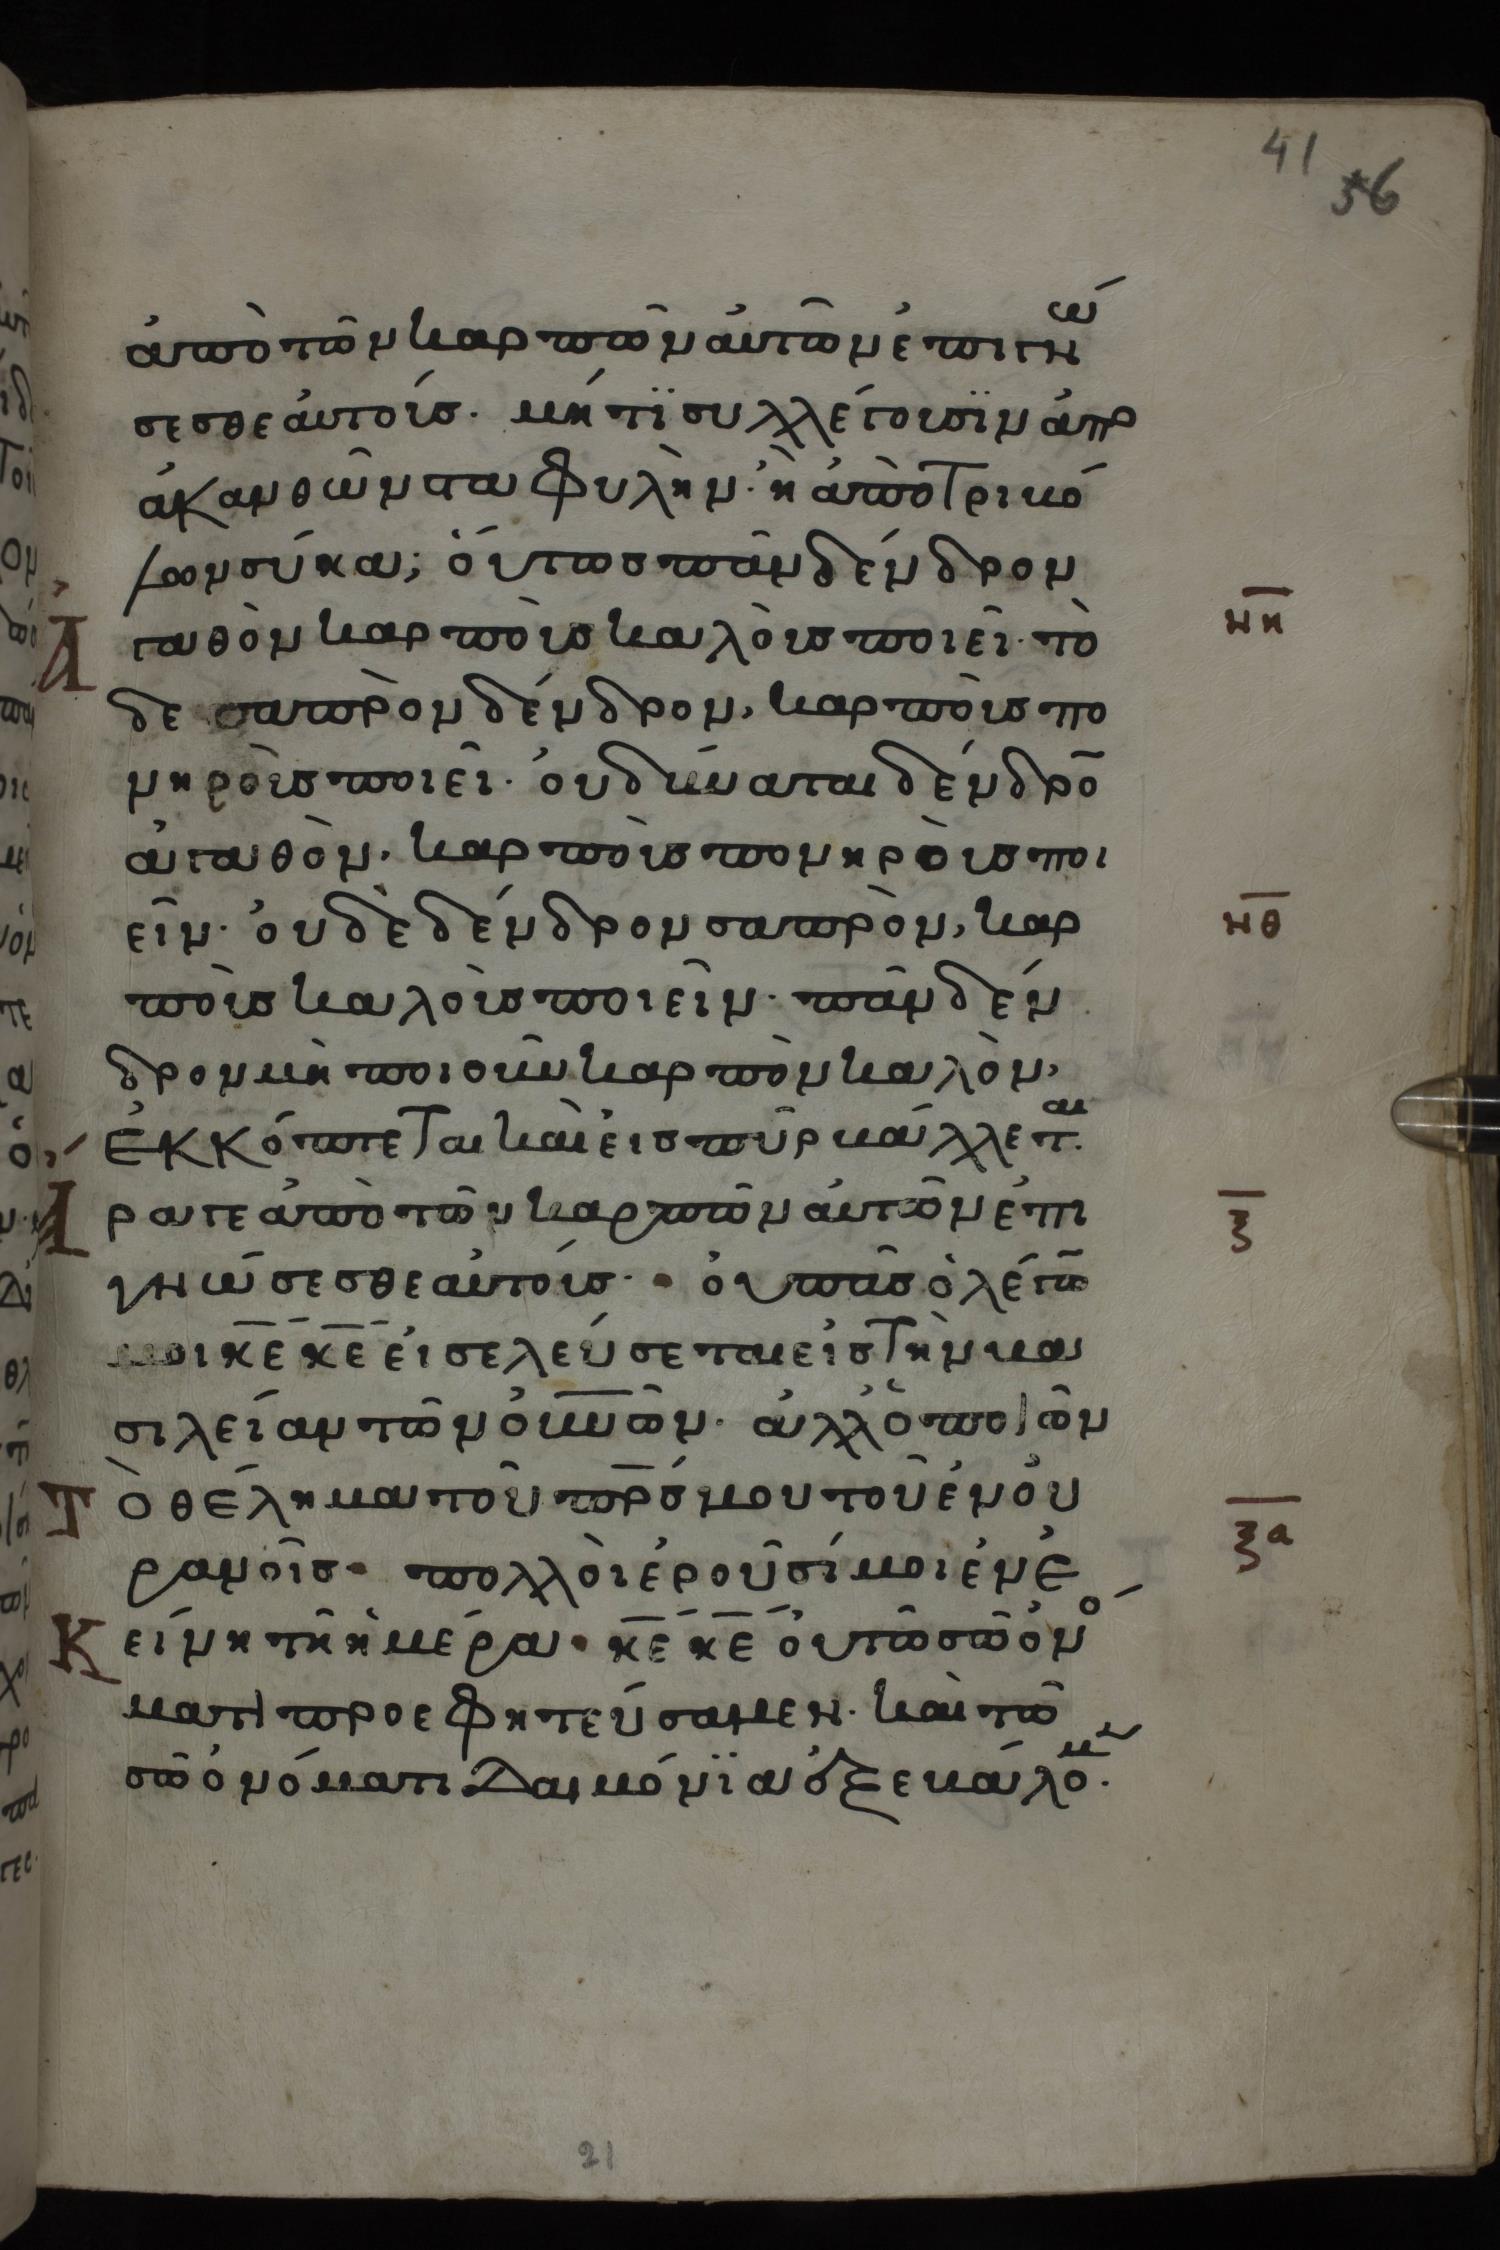 41
36
ἀπὸ τῶν καρπῶν ἀυτῶν ἐπιγνώ
σεσθε ἀυτούσ. μήτϊ συλλέγουσϊν ἀπο
ἀκανθῶν σταφυλὴν. ἢ ἀπὸ τριβό
λων σύκα; ὅυτως πᾶν δένδρον
Ἀγαθὸν καρποὺσ καλοὺσ ποιεῖ. τὸ
νη
δε σαπρὸν δένδρον, καρποὺσ πο
νηροὺσ ποιεῖ. ὀυ δύναται δένδρο̄
ἀγαθὸν, καρποὺσ πονηροὺσ ποι
εῖν. ὀυδὲ δένδρον σαπρὸν, καρ
νθ
ποὺσ καλοὺσ ποιεῖν. πᾶν δέν
δρον μὴ ποιοῦν καρπὸν καλὸν,
ἐκκόπτεται καὶ ἐισ πῦρ βάλλεται.
Ἄραγε ἀπὸ τῶν καρπῶν ἀυτῶν ἐπι
ξ
γνώσεσθε ἀυτούσ. ὀυ πᾶσ ὁ λέγω̄
μοι κ̅ε̅ κ̅ε̅ ἐισελεύσεται ἐισ τὴν βα
σιλείαν τῶν ὀυ̅ν̅ῶν. ἀλλ ὁ ποιῶν
Τὸ θέλημα τοῦ π̅ρ̅ό̅σ μου τοῦ ἐν ὀυ
ξα
ρανοῖσ. πολλοὶ ἐροῦσί μοι ἐν ἐ
Κείνη τῆ ἡμέρα. κ̅ε̅ κ̅ε̅ ὀυ τῶ σῶ ὀνό
ματι προεφητεύσαμεν. καὶ τῶ
σῶ ὀνόματι δαιμόνϊα ἐξεβάλομεν.
21